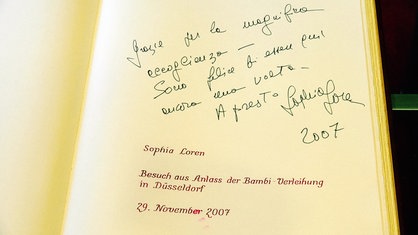 Grazie per la magnifica
accoglienza —
Sono felice di essere qui
ancora una volta -
A presto Sophia Loren
2007
Sophia Loren
Besuch aus Anlass der Bambi-Verleihung
in Düsseldorf
29. November 2007